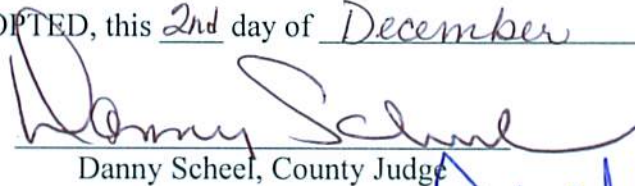 OPTED, this 2nd day of December
Danny Scheel
Danny Scheel, County Judge